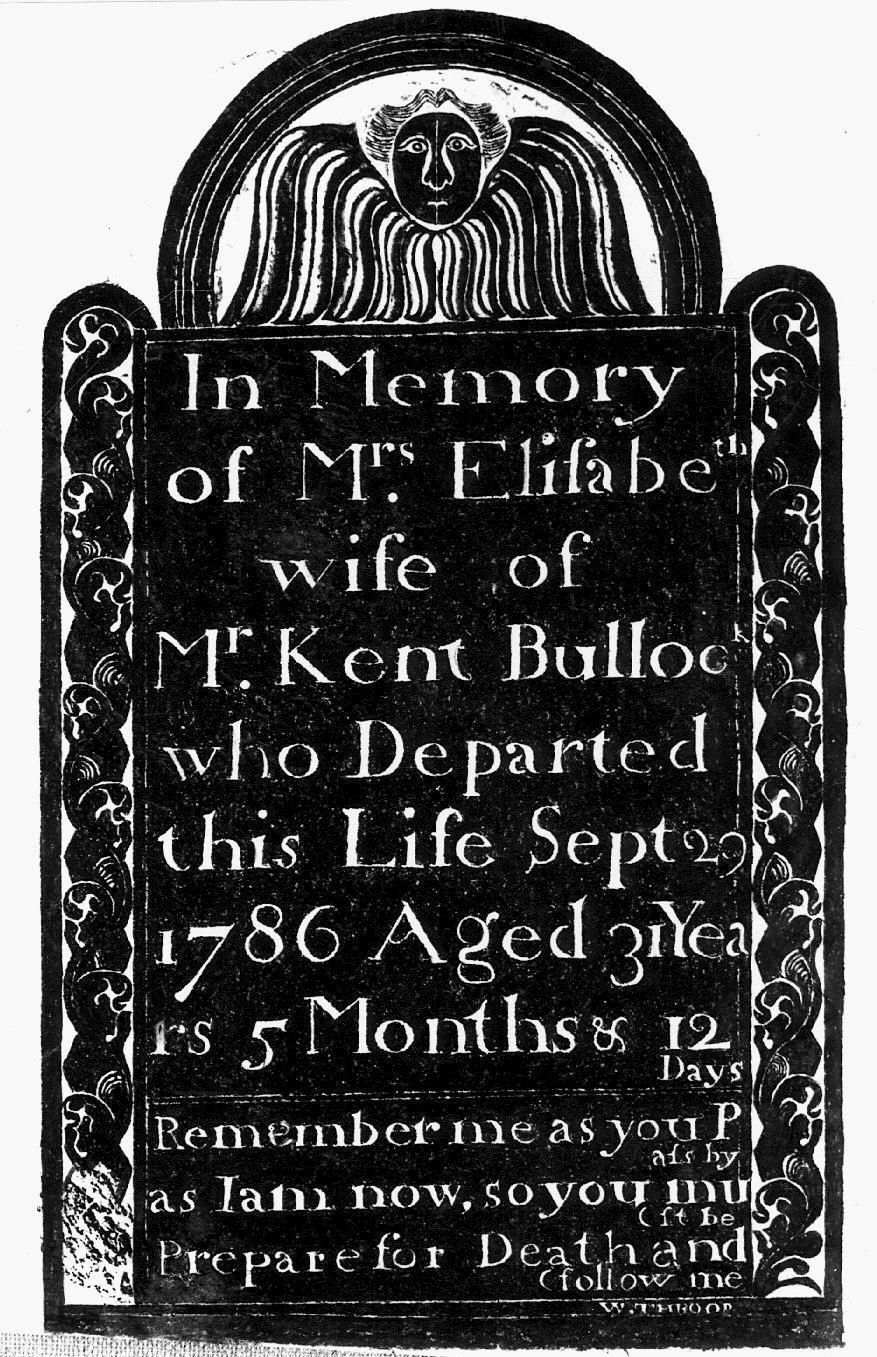 In Memory
of Mrs. Eliſabeth
wife of
Mr. Kent Bullock
who Departed
this Life Sept 29
1786 Aged 31 Yea
rs 5 Months & 12
Days
Remember me as you P
aſs by
as I am now, so you mu
(ſt be
Prepare for Death and
(follow me
W. THROOP